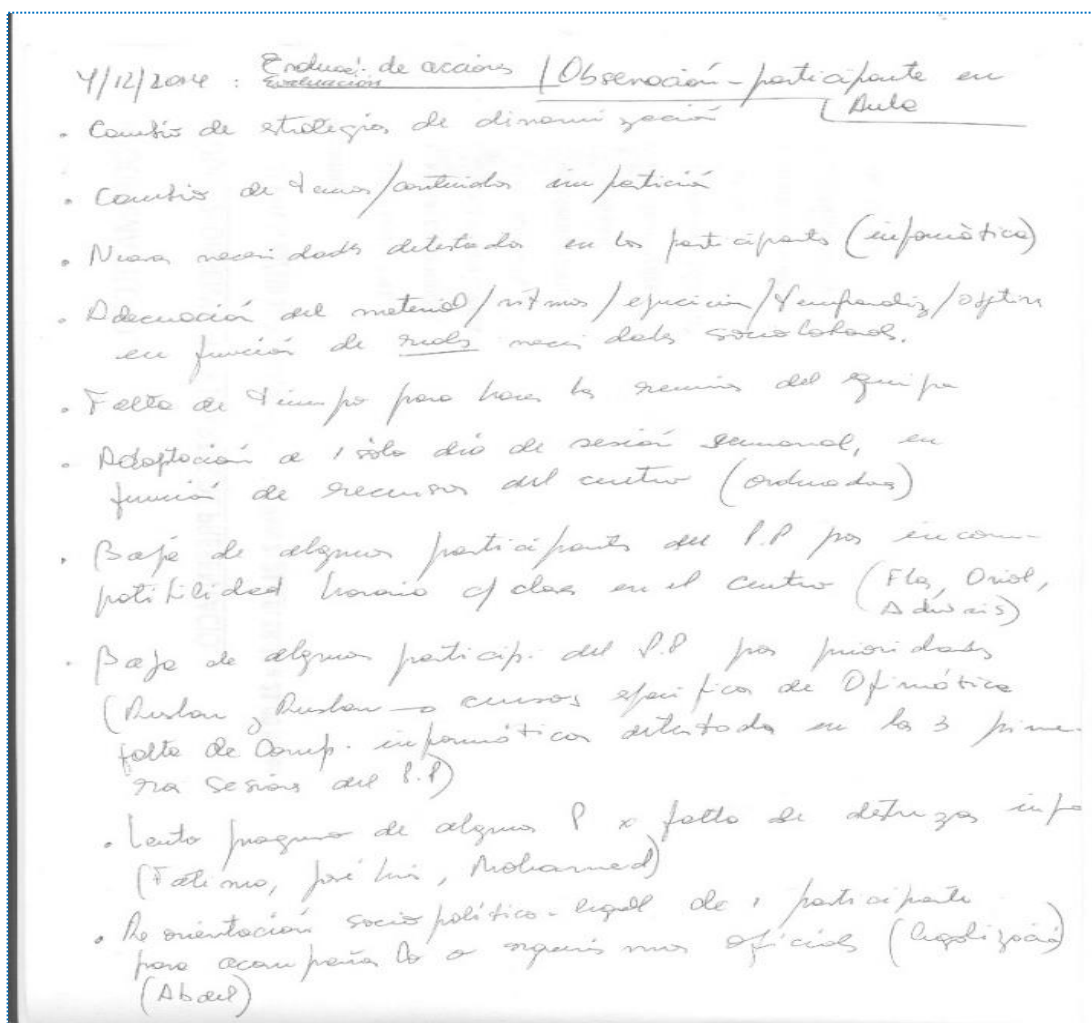 4/12/2014 : Evaluació de accions / Observación-participante en
Evaluación Aula
• Cambio de estrategias de dinamización
• Cambio de temas/contenidos impartición
• Nuevas necesidades detectadas en los participantes (informática)
• Adecuación del material/ritmos/ejercicios/
en función de reales necesidades sociolaborals.
• Falta de tiempo para hacer las reunions del equipo
• Adaptación a 1 sólo día de sesión semanal, en
función de recursos del centro (ordenadores)
• Baja de algunos participants del P.P por incom-
patibilidad horario c/ clases en el centro (Oriol,
• Baja de algunos particip. del P.P por prioridades
(Ruslan y Ruslan → cursos específicos de Ofimática
falta de Comp. informáticas detectada en las 3 prime-
ras Sesions del P.P)
• Lento progreso de algunos P x falta de destrezas info
(Fatima, José Luis, Mohamed)
• Reorientación sociopolítico-legal de 1 participante
para acompañarlo a organismos oficials (legalizació)
(Abdel)